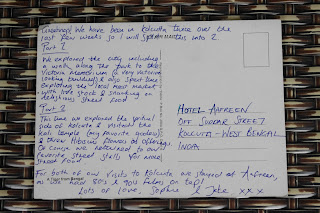 Greetings! We have been in Kolkata twice over the
last few weeks so I will split this into 2.
Part 1
We explored the city including
a walk along the park to the
Victoria Memorial (a very Victoria
looking building) & also spent time
exploring the local meat market
with live stock & snacking on
delicious street food
Part 2
This time we explored the
side of Kolkata & visited the
Kali temple (my favourite goddess)
& threw hibiscus flowers as offerings.
Of course we returned to our
favourite street stalls for more
street food
For both of our visits to Kolkata we stayed at Afreen,
as now have 90's & you films on tap!
Lots of love, Sophie & Jate xxx
HOTEL AAFREEN
OFF SUDDAR STREET
KOLKATA - WEST BENGAL
INDIA